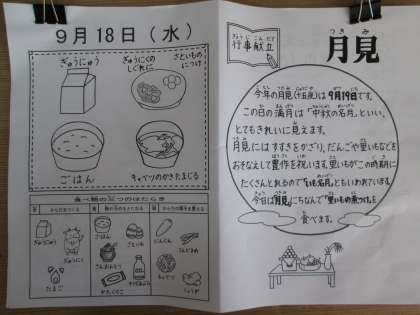 9月18日（水）
ぎゅうにゅう
ぎゅうにくの
しぐれに
さといもの
につけ
ごはん
キャベツのかきたまじる
食べ物の三つのはたらき
ぎゅうにゅう
ぎゅうにく
たまご
ごはん
さといも
さんおんとう
かたくりこ
にんじん
たまねぎ
キャベツ
しょうが
ぎょうじこんだて
行事献立
つきみ
月見
今年の月見(十五夜)は9月19日です。
この日の満月は「中秋の名月」といい、
とてもきれいに見えます。
月見にはすすきをかざり、だんごや里いもなどを
おそなえして豊作を祝います。里いもがこの時期に
たくさんとれるので「いも名月」ともいわれています。
今日は月見にちなんで「里いもの煮つけ」を
食べます。